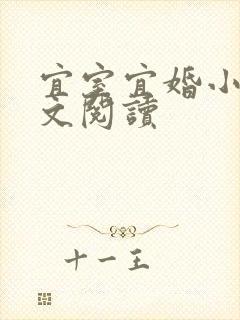 宜室宜婚小
文閱讀
十一王